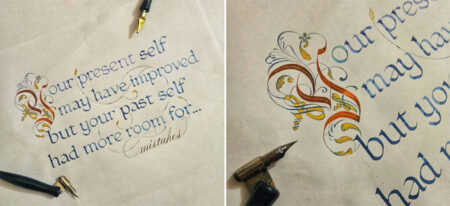 Your present self
may have improved
but your past self
had more room for...
mistakes
Your
may hav
but you
had m